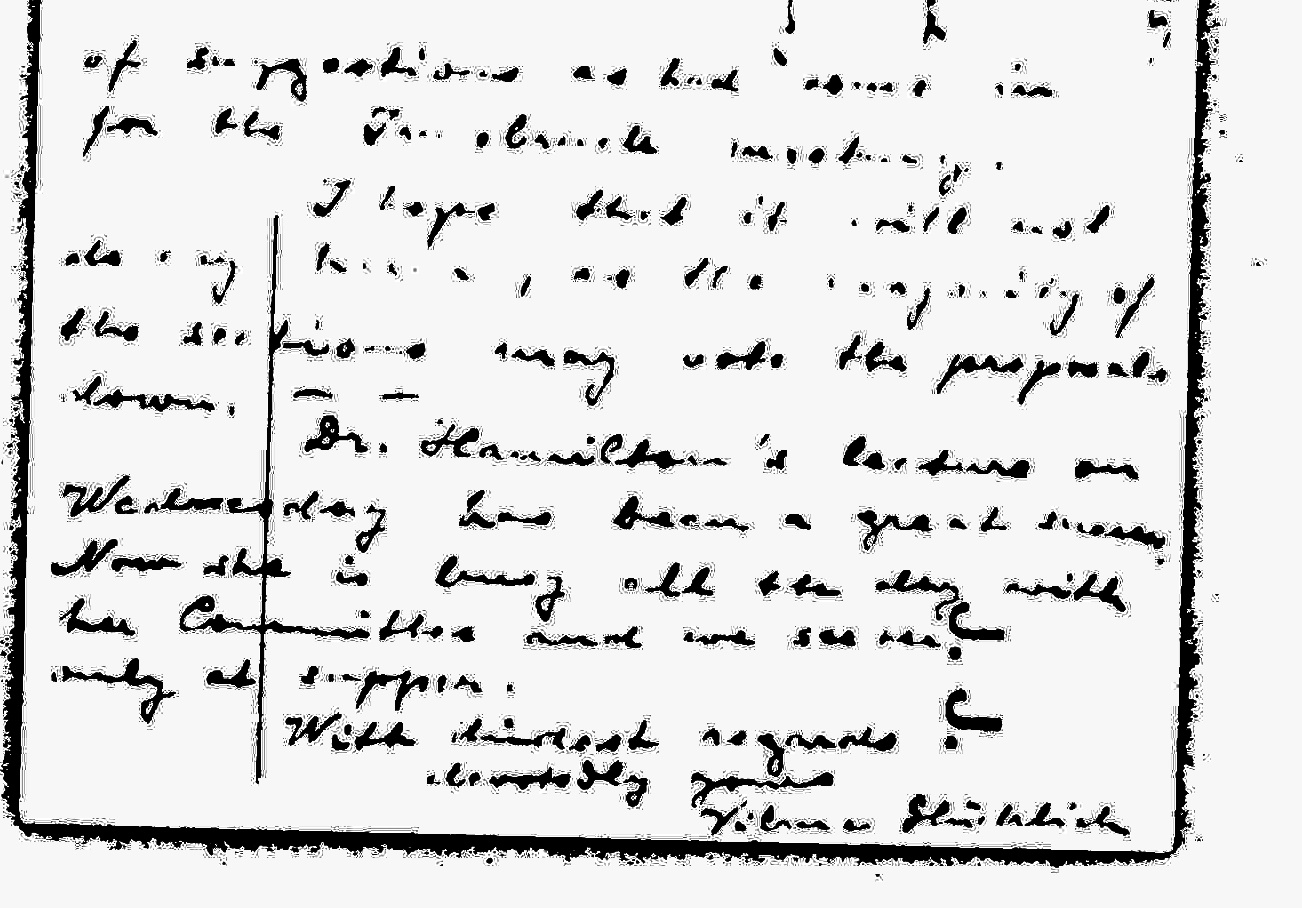 of suggestions as had come in
for the Innsbruck meeting.
I hope that it will not
do any harm, as the majority of
the sections may vote the proposals
down. — —
Dr. Hamilton's lecture on
Wednesday has been a great success
Now she is busy all the day with
her Committee and we see her
only at supper.
With kindest regards
devotedly yours
Vilma Glücklich